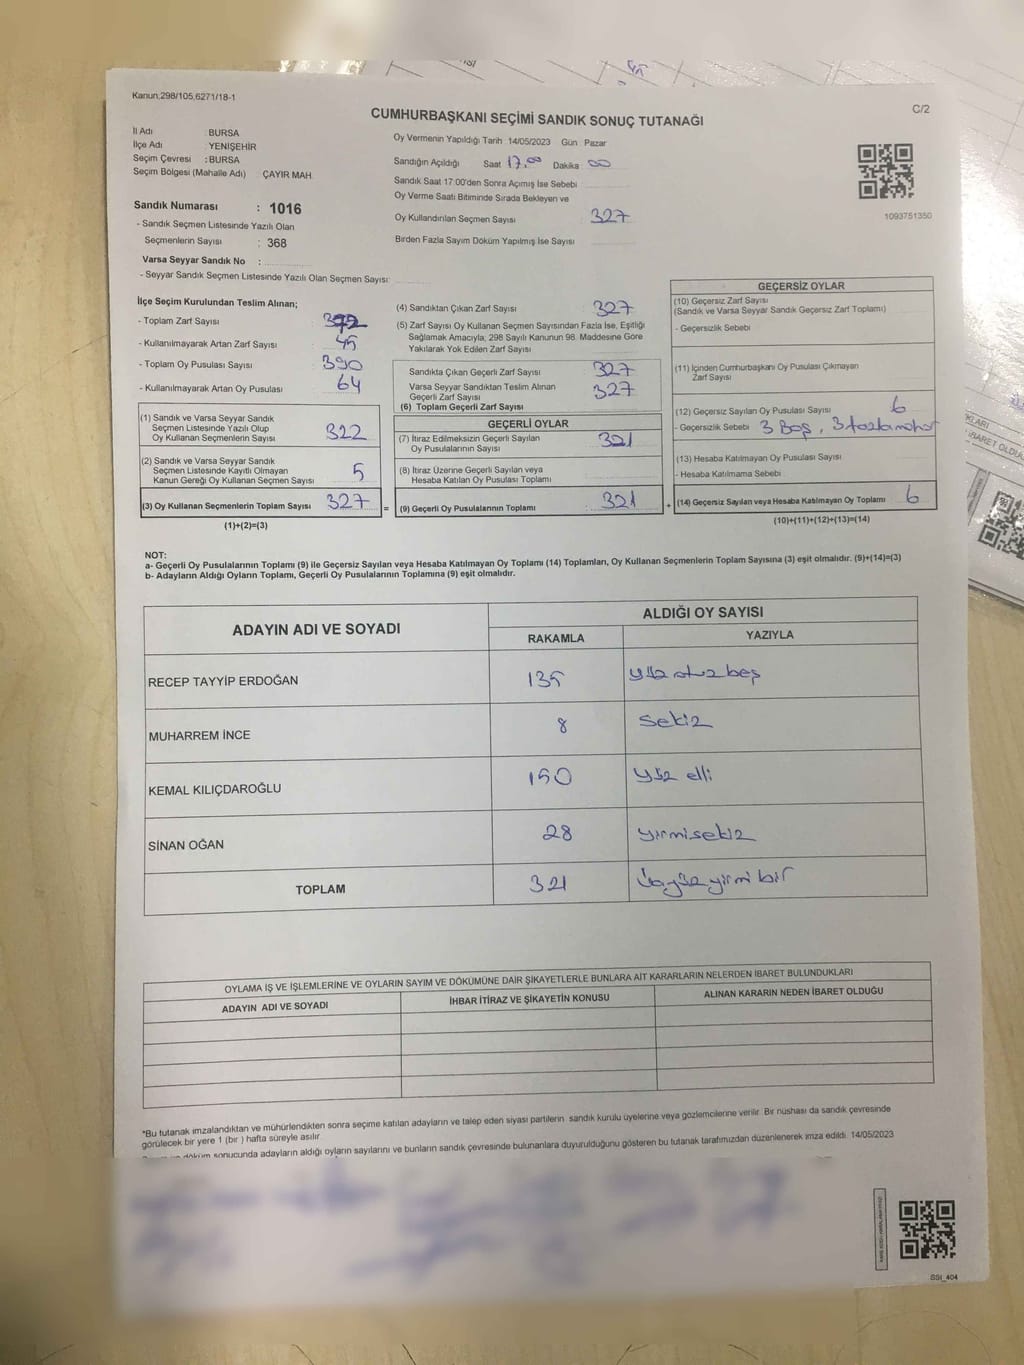 Kanun;298/105,6271/18-1
C/2
CUMHURBAŞKANI SEÇİMİ SANDIK SONUÇ TUTANAĞI
İl Adı : BURSA
İlçe Adı : YENİŞEHİR
Seçim Çevresi : BURSA
Seçim Bölgesi (Mahalle Adı) : ÇAYIR MAH.
Sandık Numarası : 1016
- Sandık Seçmen Listesinde Yazılı Olan
Seçmenlerin Sayısı : 368
Varsa Seyyar Sandık No :
- Seyyar Sandık Seçmen Listesinde Yazılı Olan Seçmen Sayısı:
Oy Vermenin Yapıldığı Tarih 14/05/2023 Gün Pazar
Sandığın Açıldığı Saat 17.00 Dakika 00
Sandık Saat 17:00'den Sonra Açımış İse Sebebi
Oy Verme Saati Bitiminde Sırada Bekleyen ve
Oy Kullandırılan Seçmen Sayısı 327
Birden Fazla Sayım Döküm Yapılmış İse Sayısı
1093751350
İlçe Seçim Kurulundan Teslim Alınan;
- Toplam Zarf Sayısı 372
- Kullanılmayarak Artan Zarf Sayısı 45
- Toplam Oy Pusulası Sayısı 390
- Kullanılmayarak Artan Oy Pusulası 64
(1) Sandık ve Varsa Seyyar Sandık
Seçmen Listesinde Yazılı Olup
Oy Kullanan Seçmenlerin Sayısı 322
(2) Sandık ve Varsa Seyyar Sandık
Seçmen Listesinde Kayıtlı Olmayan
Kanun Gereği Oy Kullanan Seçmen Sayısı 5
(3) Oy Kullanan Seçmenlerin Toplam Sayısı 327 =
(1)+(2)=(3)
(4) Sandıktan Çıkan Zarf Sayısı 327
(5) Zarf Sayısı Oy Kullanan Seçmen Sayısından Fazla İse, Eşitliği
Sağlamak Amacıyla; 298 Sayılı Kanunun 98. Maddesine Göre
Yakılarak Yok Edilen Zarf Sayısı
Sandıkta Çıkan Geçerli Zarf Sayısı 327
Varsa Seyyar Sandıktan Teslim Alınan
Geçerli Zarf Sayısı 327
(6) Toplam Geçerli Zarf Sayısı
GEÇERLİ OYLAR
(7) İtiraz Edilmeksizin Geçerli Sayılan
Oy Pusulalarının Sayısı 321
(8) İtiraz Üzerine Geçerli Sayılan veya
Hesaba Katılan Oy Pusulası Toplamı
(9) Geçerli Oy Pusulalarının Toplamı : 321 +
GEÇERSİZ OYLAR
(10) Geçersiz Zarf Sayısı
(Sandık ve Varsa Seyyar Sandık Geçersiz Zarf Toplamı)
- Geçersizlik Sebebi
(11) İçinden Cumhurbaşkanı Oy Pusulası Çıkmayan
Zarf Sayısı
(12) Geçersiz Sayılan Oy Pusulası Sayısı 6
- Geçersizlik Sebebi 3 Boş, 3 fazla mühür
(13) Hesaba Katılmayan Oy Pusulası Sayısı
- Hesaba Katılmama Sebebi
(14) Geçersiz Sayılan veya Hesaba Katılmayan Oy Toplamı 6
(10)+(11)+(12)+(13)=(14)
NOT:
a- Geçerli Oy Pusulalarının Toplamı (9) ile Geçersiz Sayılan veya Hesaba Katılmayan Oy Toplamı (14) Toplamları, Oy Kullanan Seçmenlerin Toplam Sayısına (3) eşit olmalıdır. (9)+(14)=(3)
b- Adayların Aldığı Oyların Toplamı, Geçerli Oy Pusulalarının Toplamına (9) eşit olmalıdır.
ADAYIN ADI VE SOYADI
ALDIĞI OY SAYISI
RAKAMLA YAZIYLA
RECEP TAYYİP ERDOĞAN 135 yüz otuz beş
MUHARREM İNCE 8 sekiz
KEMAL KILIÇDAROĞLU 150 yüz elli
SİNAN OĞAN 28 yirmisekiz
TOPLAM 321 üçyüzyirmi bir
OYLAMA İŞ VE İŞLEMLERİNE VE OYLARIN SAYIM VE DÖKÜMÜNE DAİR ŞİKAYETLERLE BUNLARA AİT KARARLARIN NELERDEN İBARET BULUNDUKLARI
ADAYIN ADI VE SOYADI İHBAR İTİRAZ VE ŞİKAYETİN KONUSU ALINAN KARARIN NEDEN İBARET OLDUĞU
*Bu tutanak imzalandıktan ve mühürlendikten sonra seçime katılan adayların ve talep eden siyasi partilerin sandık kurulu üyelerine veya gözlemcilerine verilir. Bir nüshası da sandık çevresinde
görülecek bir yere 1 (bir ) hafta süreyle asılır.
döküm sonucunda adayların aldığı oyların sayılarını ve bunların sandık çevresinde bulunanlara duyurulduğunu gösteren bu tutanak tarafımızdan düzenlenerek imza edildi. 14/05/2023
SSI_404